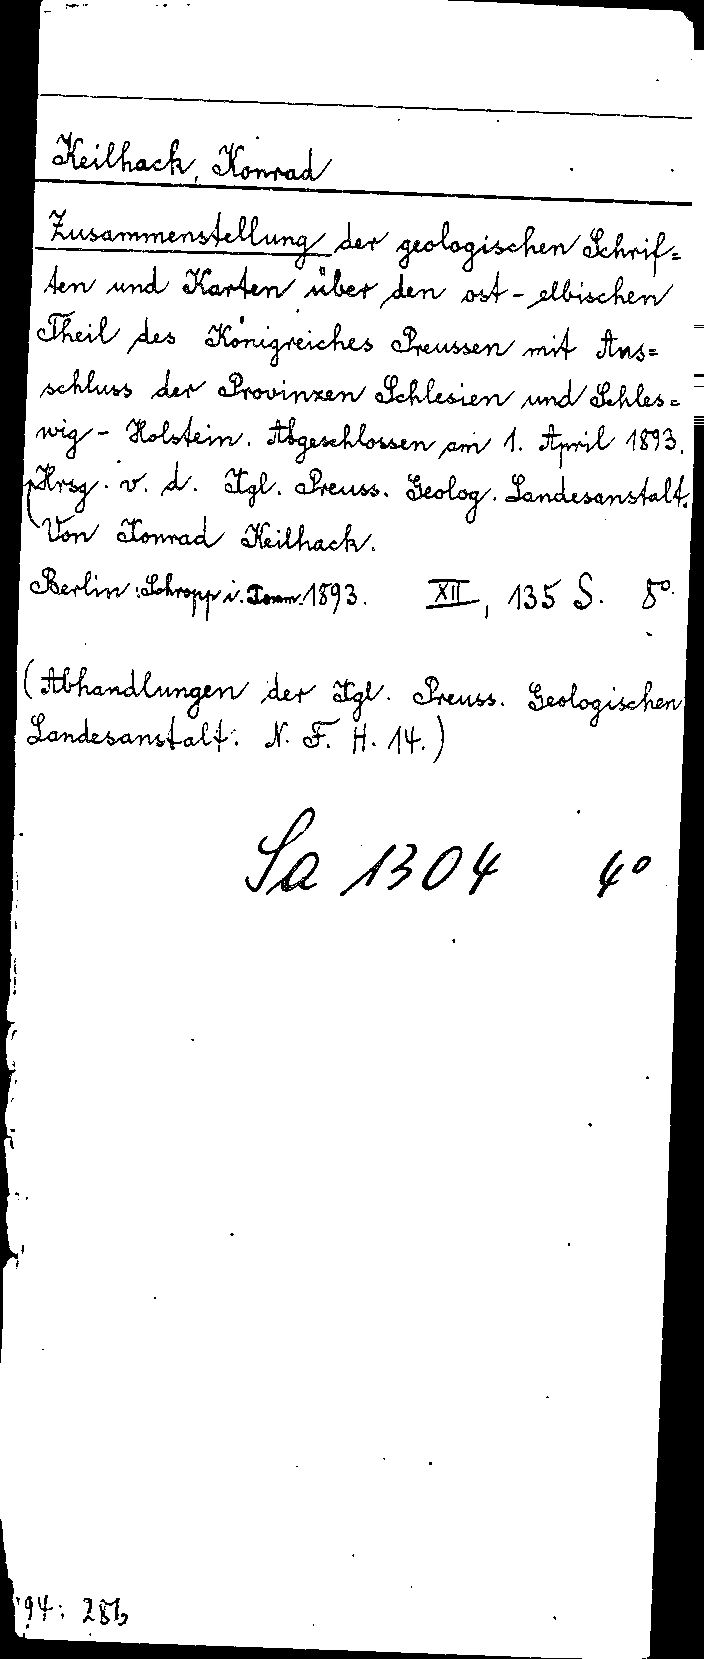 Keilhack, Konrad
Zusammenstellung der geologischen Schrif=
ten und Karten über den ost-elbischen
Theil des Königreiches Preussen mit Aus=
schluss der Provinzen Schlesien und Schles=
wig-Holstein. Abgeschlossen am 1. April 1893.
Hrsg. v. d. Kgl. Preuss. Geolog. Landesanstalt.
(Von Konrad Keilhack.
Berlin: Schropp i. Komm. 1893. XII, 135 S. 8°.
(Abhandlungen der Kgl. Preuss. Geologischen
Landesanstalt. N. F. H. 14.)
Sa 1304 4°
94: 286